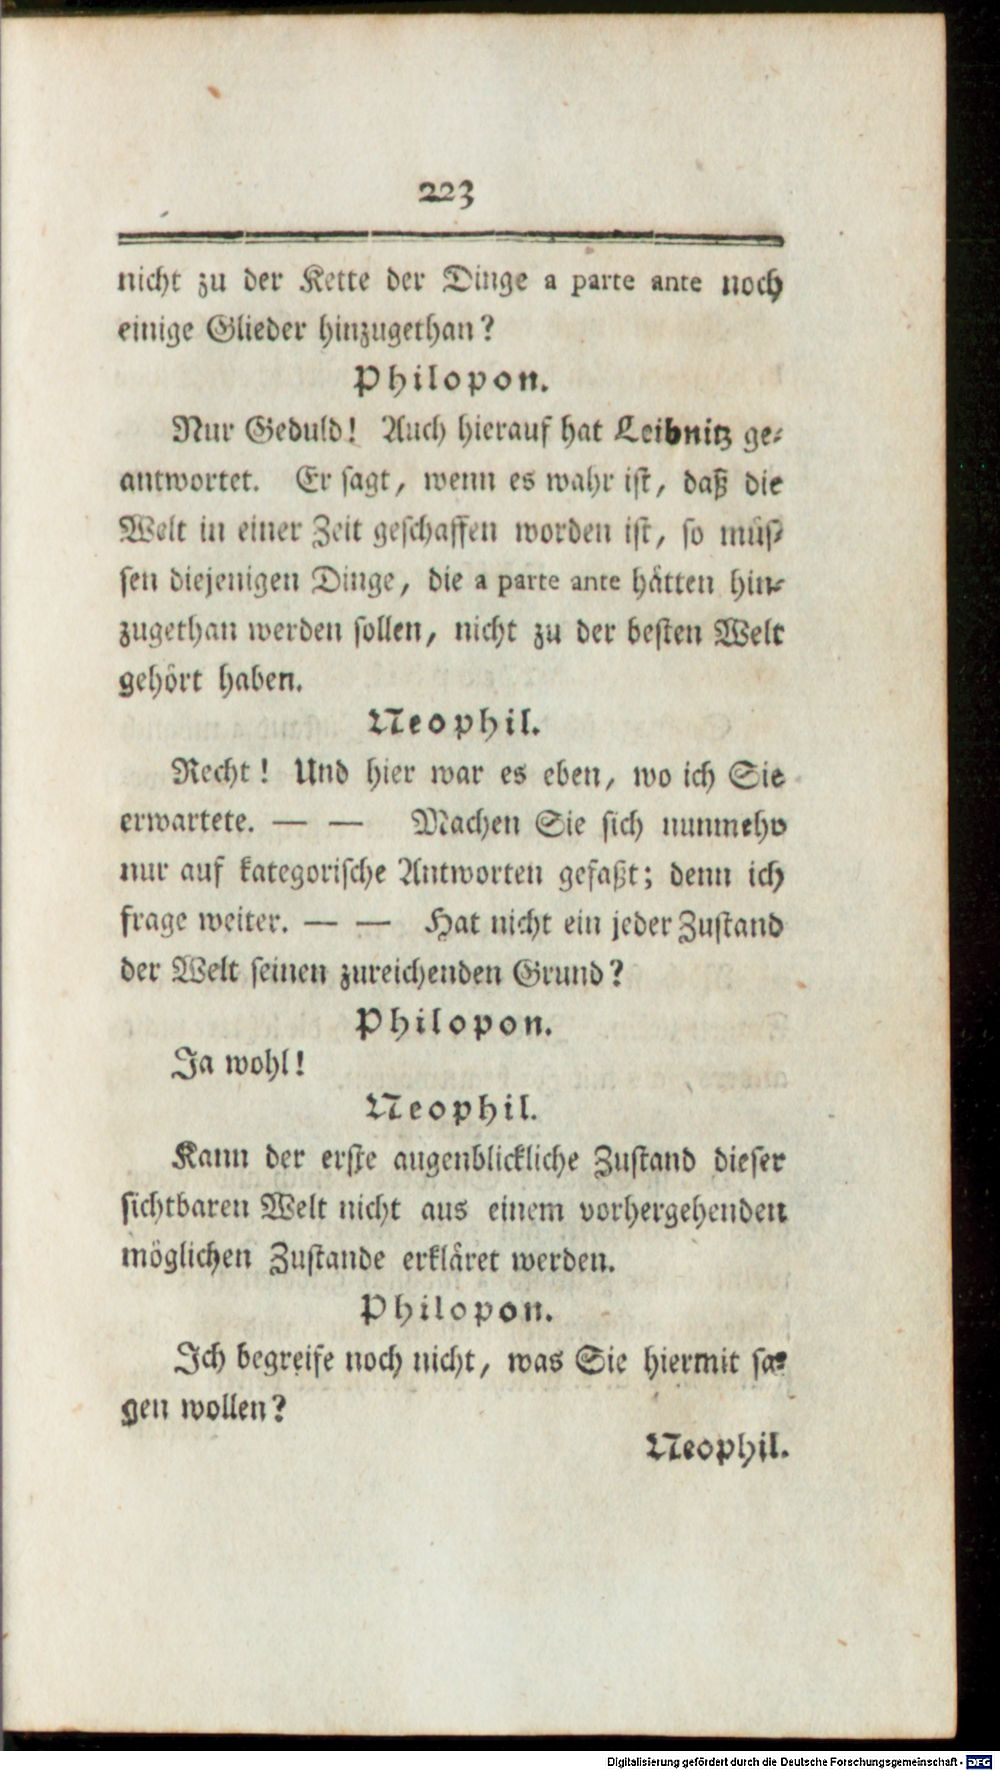 223
nicht zu der Kette der Dinge a parte ante noch
einige Glieder hinzugethan?
Philopon.
Nur Geduld! Auch hierauf hat Leibnitz ge-
antwortet. Er sagt, wenn es wahr ist, daß die
Welt in einer Zeit geschaffen worden ist, so müs-
sen diejenigen Dinge, die a parte ante hätten hin-
zugethan werden sollen, nicht zu der besten Welt
gehört haben.
Neophil.
Recht! Und hier war es eben, wo ich Sie
erwartete. — — Machen Sie sich nunmehr
nur auf kategorische Antworten gefaßt; denn ich
frage weiter. — — Hat nicht ein jeder Zustand
der Welt seinen zureichenden Grund?
Philopon.
Ja wohl!
Neophil.
Kann der erste augenblickliche Zustand dieser
sichtbaren Welt nicht aus einem vorhergehenden
möglichen Zustande erkläret werden.
Philopon.
Ich begreife noch nicht, was Sie hiermit sa-
gen wollen?
Neophil.
Digitalisierung gefördert durch die Deutsche Forschungsgemeinschaft - DFG